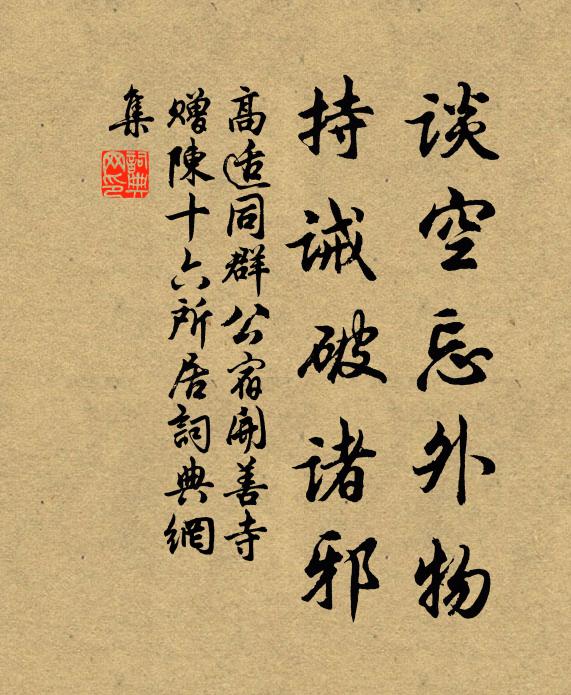 谈空忘外物
持诫破诸邪
高适同群公宿開善寺
赠陳十六所居詞典網
集
詞典
网印